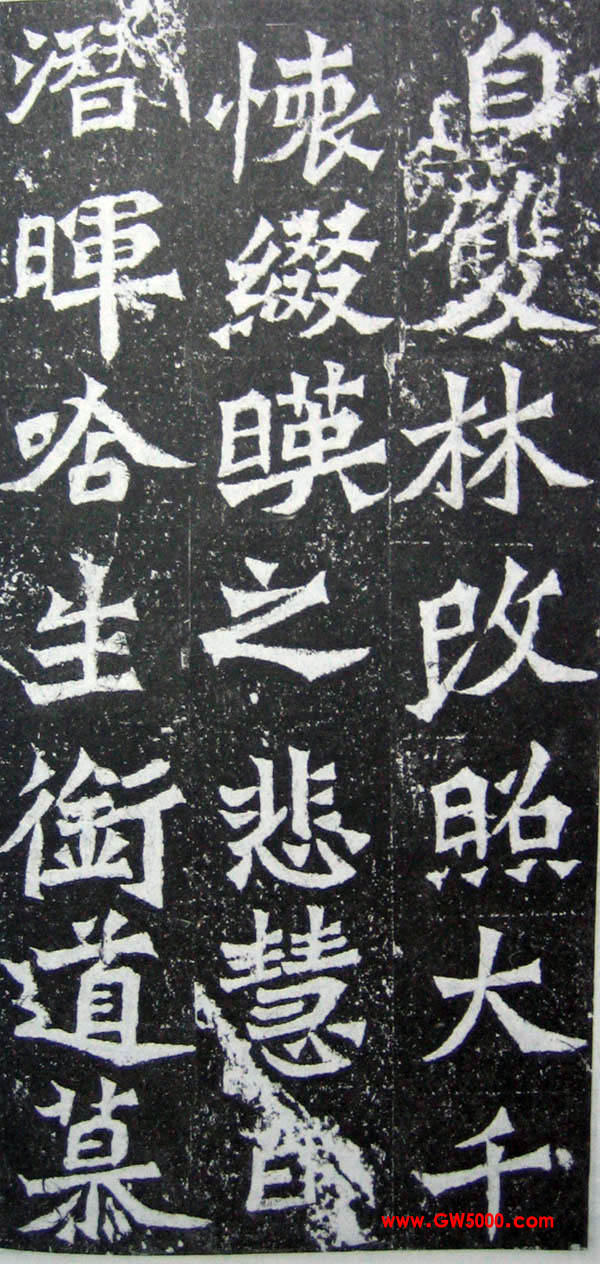 自雙林改照大千
懷綴暎之悲慧日
潛暉哈生銜道慕
www.GW5000.com